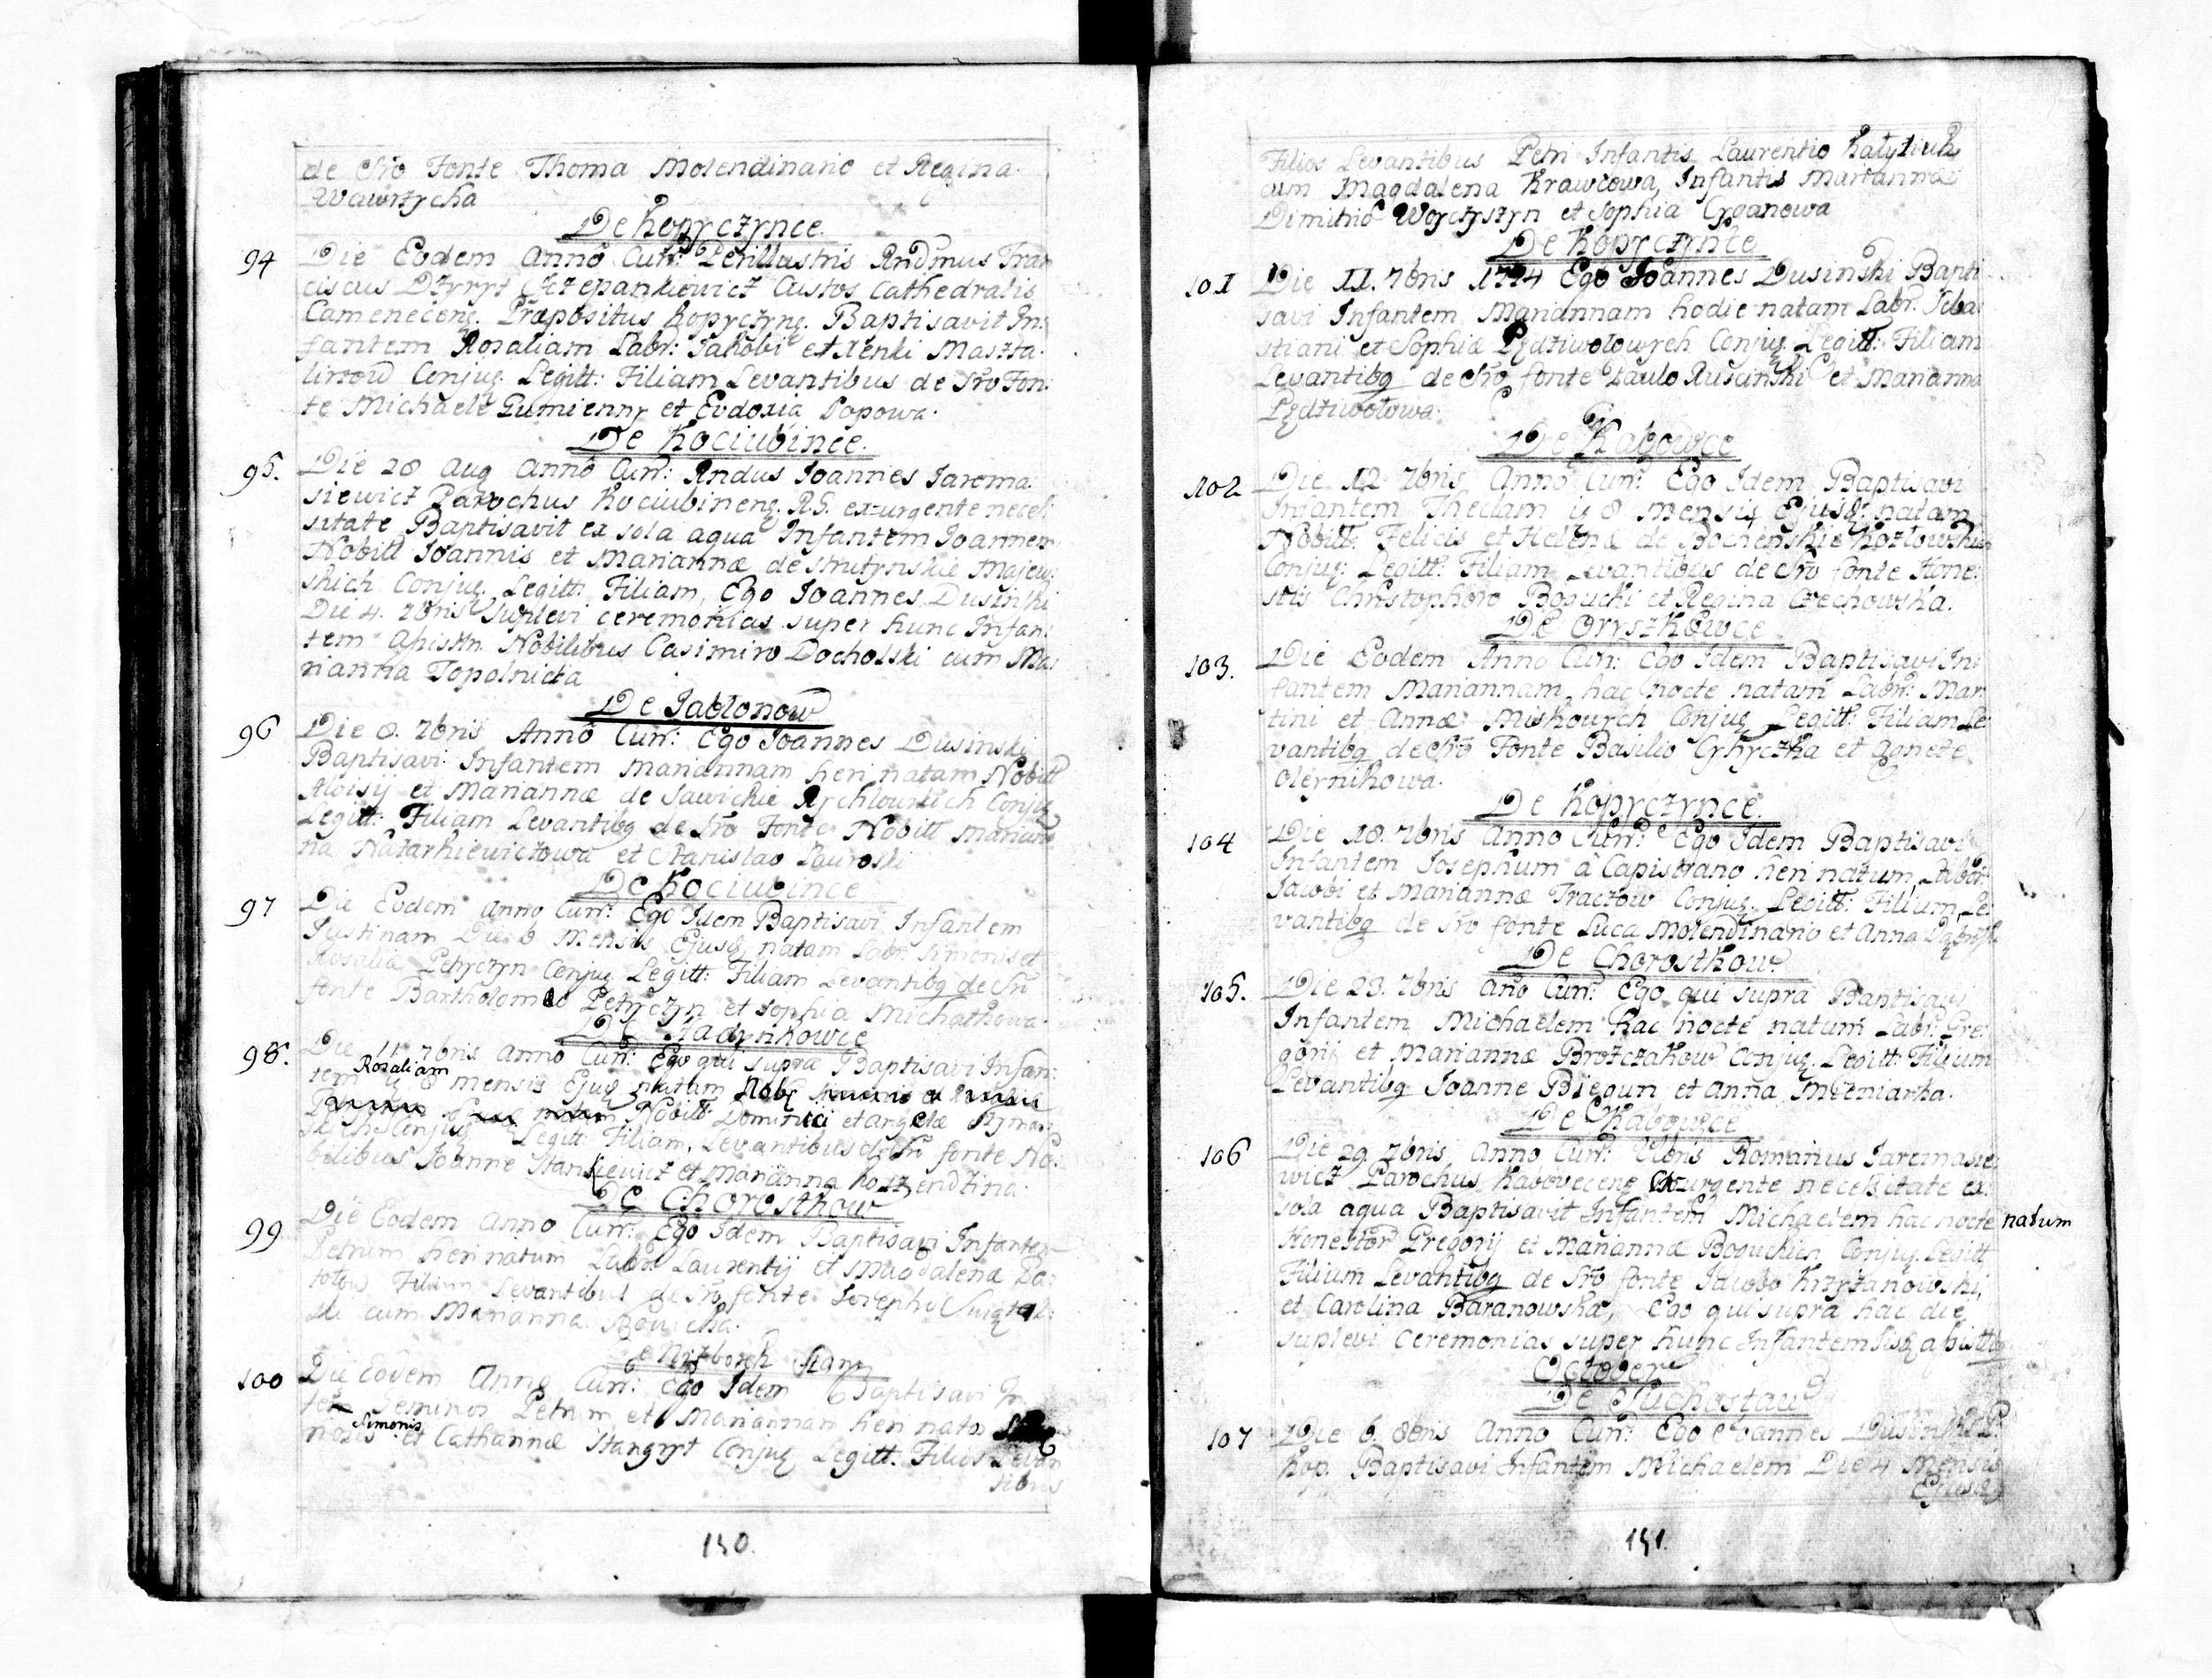 de Sro Fonte Thoma Molendinario et Regina
Wawrzycha
De Kopyczynce
94 Die Eodem Anno Curr: Perillustris Rndmus Fran
ciscus Szczepankiewicz Custos Cathedralis
Cameneceng. Præpositus Kopyczyng. Baptisavit In:
fantem Rosaliam Labr: Jakobi et Xenki Maszta-
lirzow Conjug. Legitt: Filiam Levantibus de Sro Fon:
te Michaele Gumienny et Eudoxia Popowa.
De Kociubince.
95. Die 28 Aug Anno Curr: Rndus Joannes Jarema
siewicz Parochus Kociubineng. R.G. exurgente necess:
sitate Baptisavit ex sola aqua Infantem Joannem
Nobill Joannis et Mariannæ de Strutynskie Majew:
skich Conjug. Legitt: Filiam, Ego Joannes Dusinski
Die 4. 7bris Suplevi ceremonias super hunc Infan:
tem Assistn. Nobilibus Casimiro Docholski cum Ma:
rianna Topolnicka
De Jabłonow
96 Die 8. 7bris Anno Curr: Ego Joannes Dusinski
Baptisavi Infantem Mariannam heri natam Nobill
Aloisij et Mariannæ de Sawickie Rychlowskich Conjug
Legitt: Filiam Levantibg de Sro Fonte Nobill Marian
na Natarkiewiczowa et Stanislao
De Kociubince
97 Die Eodem Anno Curr: Ego Idem Baptisavi Infantem
Justinam Die 8 Mensis Ejusq natam Labr. Simonis et
Rosalia Petryczyn Conjug Legitt: Filiam Levantibg de Sro
fonte Bartholomeo Petryczyn et Sophia Michałkowa.
De
98. Die 11 7bris Anno Curr: Ego qui supra Baptisavi Infan:
Rosaliam
tem 8 mensis Ejusq natam
Nobill: Dominici et Angelæ
Conjug Legitt: Filiam, Levantibus de Sro fonte No:
bilibus Joanne Stankiewicz et Marianna
De Chorostkow
99 Die Eodem Anno Curr: Ego Idem Baptisavi Infantem
Petrum heri natum Labr. Laurentij et Magdalena
Filium Levantibus de Sro fonte Josepho
ski cum Marianna
De Nizborgk Stary
100 Die Eodem Anno Curr: Ego Idem Baptisavi In
Geminos Petrum et Mariannam heri natos
Simonis
et Catharinæ Stangryt Conjug Legitt. Filios Levan
tibus
150.
Filios Levantibus Petri Infantis Laurentio
cum Magdalena Krawcowa, Infantis Mariannæ
Dimitrio Woyczyszyn et Sophia Cyganowa
De Kopyczynce
101 Die 11. 7bris 1794 Ego Joannes Dusinski Bapti
savi Infantem Mariannam hodie natam Labr. Seba:
stiani et Sophiæ Pędziwołowych Conjug. Legitt: Filiam
Levantibg de Sro fonte Paulo Ruscinski et Marianna
Pędziwołowa.
De Kabowce
102 Die 12 7bris Anno Curr: Ego Idem Baptisavi
Infantem Theclam 8 mensis Ejusq: natam
Nobill: Felicis et Helenæ de Bochenskie Kozłowskich
Conjug: Legitt: Filiam Levantibus de Sro fonte Hone:
stis Christophoro Bogucki et Regina Czechowska.
De Oryszkowce
103. Die Eodem Anno Curr: Ego Idem Baptisavi In:
fantem Mariannam, hac nocte natam Labr: Mar
tini et Annæ Miskowych Conjug Legitt: Filiam Le:
vantibg de Sro Fonte Basilio et Agnete
Oleynikowa.
De Kopyczynce
104 Die 18. 7bris Anno Curr: Ego Idem Baptisavi
Infantem Josephum à Capistrano heri natum Labor:
Jacobi et Mariannæ Traczow Conjug. Legitt: Filium Le:
vantibg de Sro fonte Luca Molendinario et Anna
De Chorostkow
105. Die 23. 7bris Año Curr: Ego qui supra Baptisavi
Infantem Michaelem hac nocte natum Labr: Gre:
gorij et Mariannæ Brozczakow Conjug. Legitt: Filium
Levantibg Joanne Biegun et Anna
De Kabowce
106 Die 29 7bris Anno Curr: Romanus Jaremasie:
wicz Parochus Kaboveceng Exurgente necessitate ex:
sola aqua Baptisavit Infantem Michaelem hac nocte natum
Honestor Gregorij et Mariannæ Boguckich Conjug. Legitt
Filium Levantibg de Sro fonte Jacobo Krzyżanowski,
et Carolina Baranowska, Ego qui supra hac die
suplevi ceremonias super hunc Infantem
October
De Suchostaw
107 Die 6. 8bris Anno Curr: Ego Joannes Dusinski P.
Kop. Baptisavi Infantem Michaelem Die 4 Mensis
Ejusq
151.